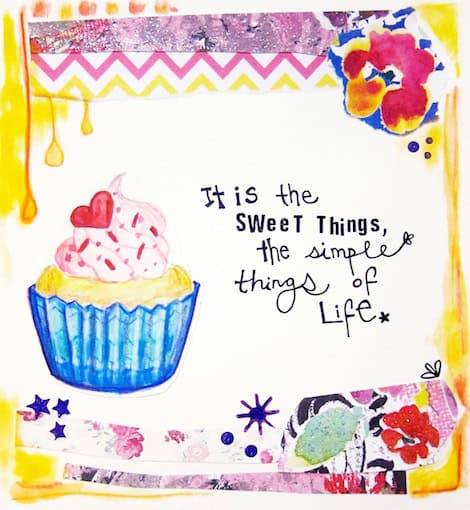 It is the
SWeeT Things,
the simple
things of
Life.